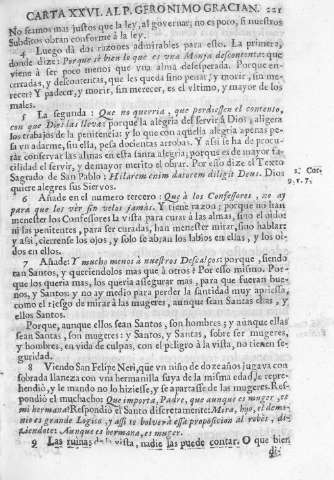 CARTA XXVI. AL P. GERONIMO GRACIAN. 221
No seamos mas justos que la ley, al governar; no es poco, si nuestros
subditos obran conforme à la ley.
4 Luego dà dos razones admirables para esto. La primera,
donde dize: Porque sè bien lo que es vna Monja descontenta: que
viene à ser poco menos que vna alma desesperada. Porque en-
cerradas, y descontentas, que les queda sino penar, y morir, sin me-
recer? Y padecer, y morir, sin merecer, es el vltimo, y mayor de los
males.
5 La segunda: Que no querria, que perdiessen el contento,
con que Dios las lleva: porque la alegria del servir à Dios, aligera
los trabajos de la penitencia: y lo que con aquella alegria apenas pe-
sa vn adarme, sin ella, pesa docientas arrobas. Y assi se ha de procu-
rar conservar las almas en esta santa alegria; porque es de mayor fa-
cilidad el servir, y de mayor merito el obrar. Por esso dize el Texto
Sagrado de San Pablo: Hilarem enim datorem diligit Deus. Dios
quiere alegres sus Siervos.
2. Cor.
9. v. 7.
6 Añade en el numero tercero: Que à los Confessores, no ay
para que los vèr sin velos jamàs. Y tiene razon; porque no han
menester los Confessores la vista para curar à las almas, sino el oìdo:
ni las penitentes, para ser curadas, han menester mirar, sino hablar:
y assi, cierrense los ojos, y solo se abran los labios en ellas, y los oi-
dos en ellos.
7 Añade: Y mucho menos à nuestros Descalços: porque, siendo
tan Santos, y queriendolos mas que à otros? Por esso mismo. Por-
que los queria mas, los queria assegurar mas, para que fueran bue-
nos, y Santos: y no ay medio para perder la santidad muy apriessa,
como el riesgo de mirar à las mugeres, aunque sean Santas ellas, y
ellos Santos.
Porque, aunque ellos sean Santos, son hombres; y aunque ellas
sean Santas, son mugeres: y Santos, y Santas, sobre ser mugeres,
y hombres, en vida de culpas, con el peligro à la vista, no tienen se-
guridad.
8 Viendo San Felipe Neri, que vn niño de doze años jugava con
sobrada llaneza con vna hermanilla suya de la misma edad, le repre-
hendiò, y le mandò no lo hiziesse, y se apartasse de las mugeres. Res-
pondiò el muchacho: Que importa, Padre, que aunque es muger, es
mi hermana? Respondiò el Santo discretamente: Mira, hijo, el demo-
nio es grande Logico, y assi te bolverà essa proposicion al revès, di-
ziendote: Aunque es hermana, es muger.
9 Las ruinas de la vista, nadie las puede contar. O que bien
di-